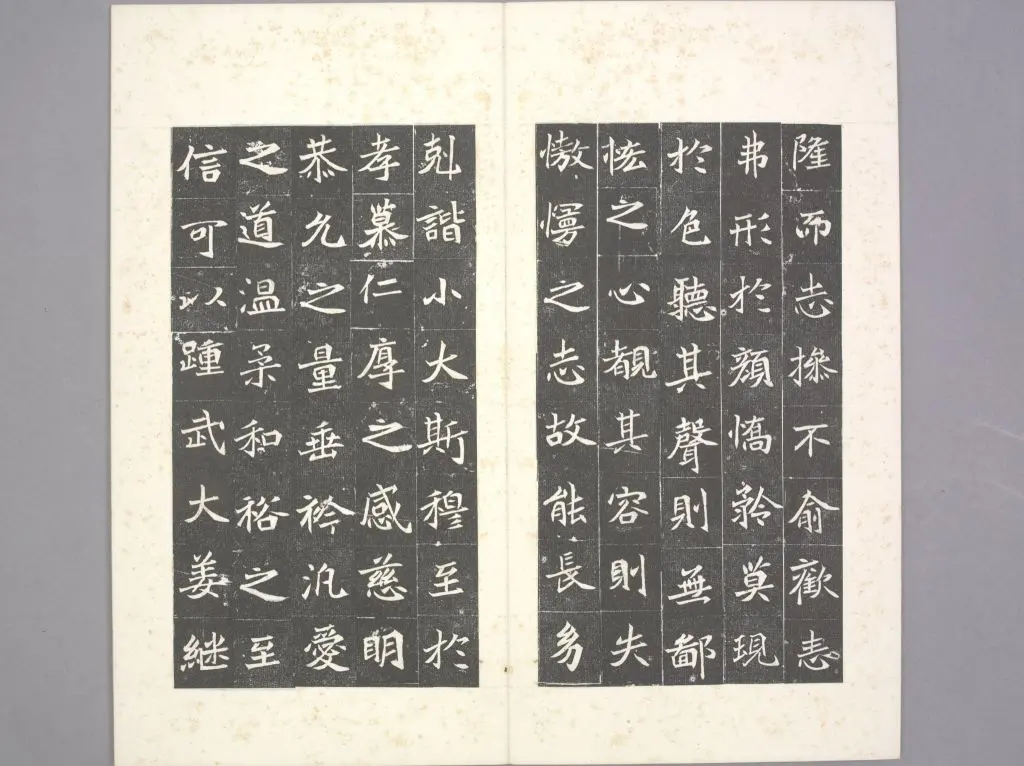 隆而志操不俞歡恚
弗形於顔憍矜莫現
於色聽其聲則無鄙
悋之心覩其容則失
慠慢之志故能長幼
剋諧小大斯穆至於
孝慕仁厚之感慈明
恭允之量垂衿汎愛
之道温柔和裕之至
信可以踵武大姜継